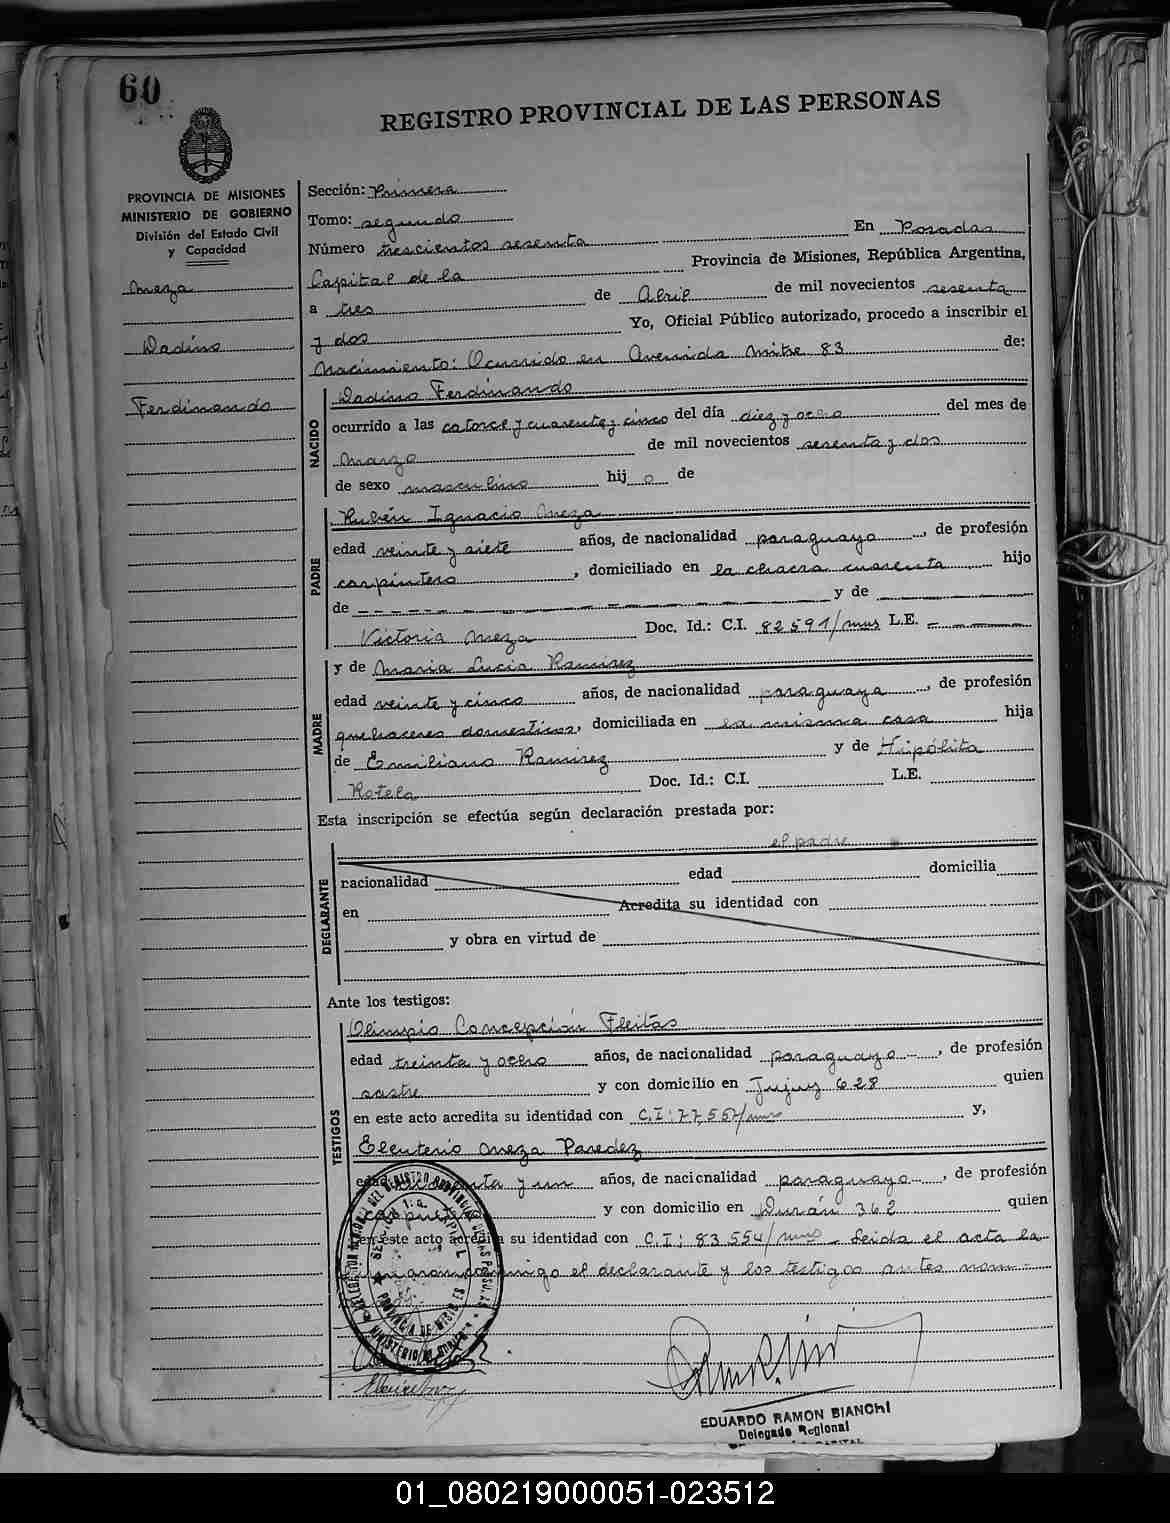 60
REGISTRO PROVINCIAL DE LAS PERSONAS
PROVINCIA DE MISIONES
MINISTERIO DE GOBIERNO
División del Estado Civil
y Capacidad
Meza
Dadino
Ferdinando
Sección: Primera
Tomo: segundo
Número trescientos sesenta En Posadas
Capital de la Provincia de Misiones, República Argentina,
a tres de Abril de mil novecientos sesenta
y dos Yo, Oficial Público autorizado, procedo a inscribir el
Nacimiento: Ocurrido en Avenida Mitre 83 de:
NACIDO
Dadino Ferdinando
ocurrido a las catorce y cuarenta y cinco del día diez y ocho del mes de
Marzo de mil novecientos sesenta y dos
de sexo masculino hijo de
PADRE
Rubén Ignacio Meza
edad veinte y siete años, de nacionalidad paraguayo, de profesión
carpintero, domiciliado en la chacra cuarenta hijo
de y de
Victoria Meza Doc. Id.: C.I. 82591/mns L.E.
MADRE
y de Maria Lucia Ramirez
edad veinte y cinco años, de nacionalidad paraguaya, de profesión
quehaceres domesticos, domiciliada en la misma casa hija
de Emiliano Ramirez y de Hipólita
Rotela Doc. Id.: C.I. L.E.
Esta inscripción se efectúa según declaración prestada por:
el padre
DECLARANTE
nacionalidad edad domicilia
en Acredita su identidad con
y obra en virtud de
Ante los testigos:
TESTIGOS
Olimpio Concepción Fleitas
edad treinta y ocho años, de nacionalidad paraguayo, de profesión
sastre y con domicilio en Jujuy 628 quien
en este acto acredita su identidad con C.I: 77,557/mns y,
Eleuterio Meza Paredez
edad y un años, de nacionalidad paraguayo, de profesión
y con domicilio en Durán 362 quien
en este acto acredita su identidad con C.I: 83.554/mns Leida el acta la
conmigo el declarante y los testigos antes nom-
DELEGACION REGIONAL DEL REGISTRO PROVINCIAL DE LAS PERSONAS
SECCION 1a. CAPITAL
PROVINCIA DE MISIONES
MINISTERIO DE GOBIERNO
EDUARDO RAMON BIANCHI
Delegado Regional
CAPITAL
01_080219000051-023512